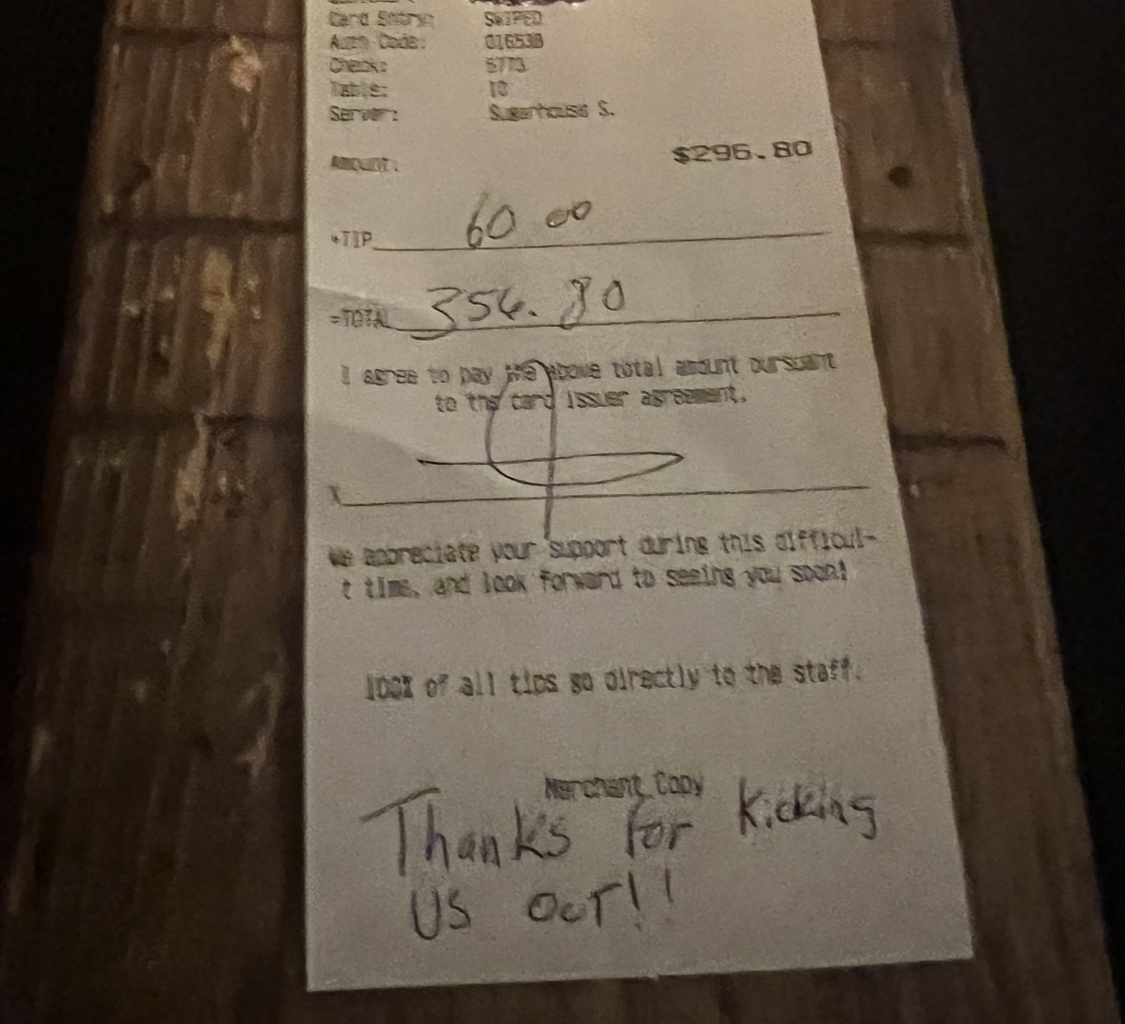 Card Entry: SWIPED
Auth Code: 016538
Check: 5773
Table: 10
Server: Sugarhouse S.
Amount: $296.80
+TIP 60 00
=TOTAL 356.80
I agree to pay the above total amount pursuant
to the card issuer agreement.
X
We appreciate your support during this difficul-
t time, and look forward to seeing you soon!
100% of all tips go directly to the staff.
Merchant Copy
Thanks for Kicking
US OUT!!